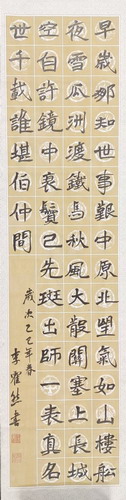 早歲那知世事艱中原北望氣如山樓船
夜雪瓜洲渡鐵馬秋風大散關塞上長城
空自許鏡中衰鬢已先斑出師一表真名
世千載誰堪伯仲間
歲次乙巳年春
李耀書